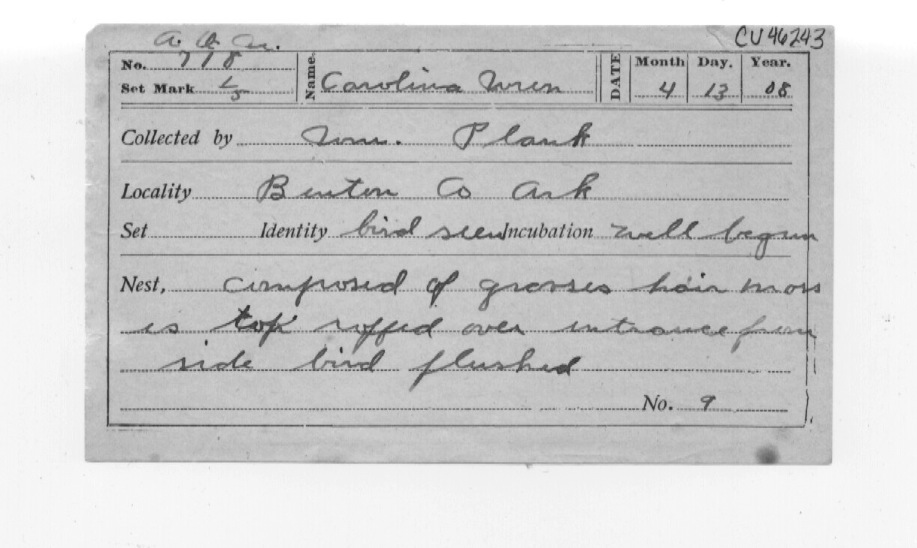 A. O. U. CU 46243
No. 718 Name. Carolina Wren DATE Month Day. Year.
Set Mark 1/5 4 13 08
Collected by Wm. Plank
Locality Benton Co Ark
Set Identity bird seen Incubation well begun
Nest, composed of grasses hair moss
is top roffed over entrance from
side bird flushed
No. 9